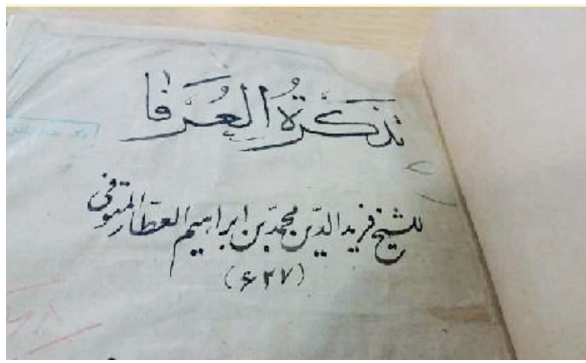 تذكرة العُرَفا
للشيخ فريد الدّين محمّد بن ابراهيم العطّار المتوفى
(۶۲۷)